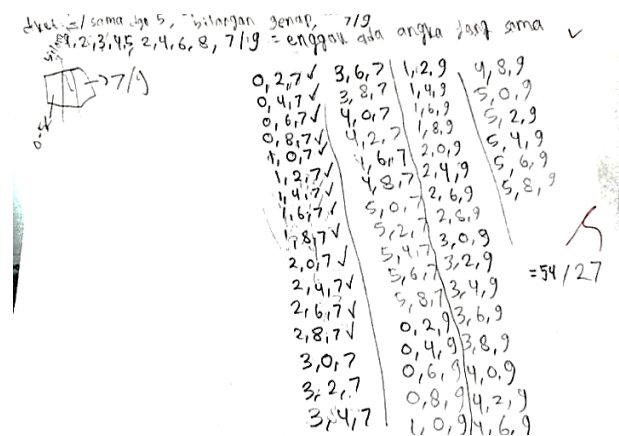 sama dgn 5, bilangan genap, 7/9
1,2,3,4,5, 2,4,6,8, 7/9 = enggak ada angka yang sama
→ 7/9
0-5
0,2,7 ✓
0,4,7 ✓
0,6,7 ✓
0,8,7 ✓
1,0,7 ✓
1,2,7 ✓
1,4,7 ✓
1,6,7 ✓
1,8,7 ✓
2,0,7 ✓
2,4,7 ✓
2,6,7 ✓
2,8,7 ✓
3,0,7
3,2,7
3,4,7
3,6,7
3,8,7
4,0,7
4,2,7
1,6,7
4,8,7
5,0,7
5,2,7
5,4,7
5,6,7
5,8,7
0,2,9
0,4,9
0,6,9
0,8,9
1,0,9
1,2,9
1,4,9
1,6,9
1,8,9
2,0,9
2,4,9
2,6,9
2,8,9
3,0,9
3,2,9
3,4,9
3,6,9
3,8,9
4,0,9
4,2,9
4,6,9
4,8,9
5,0,9
5,2,9
5,4,9
5,6,9
5,8,9
= 54/27